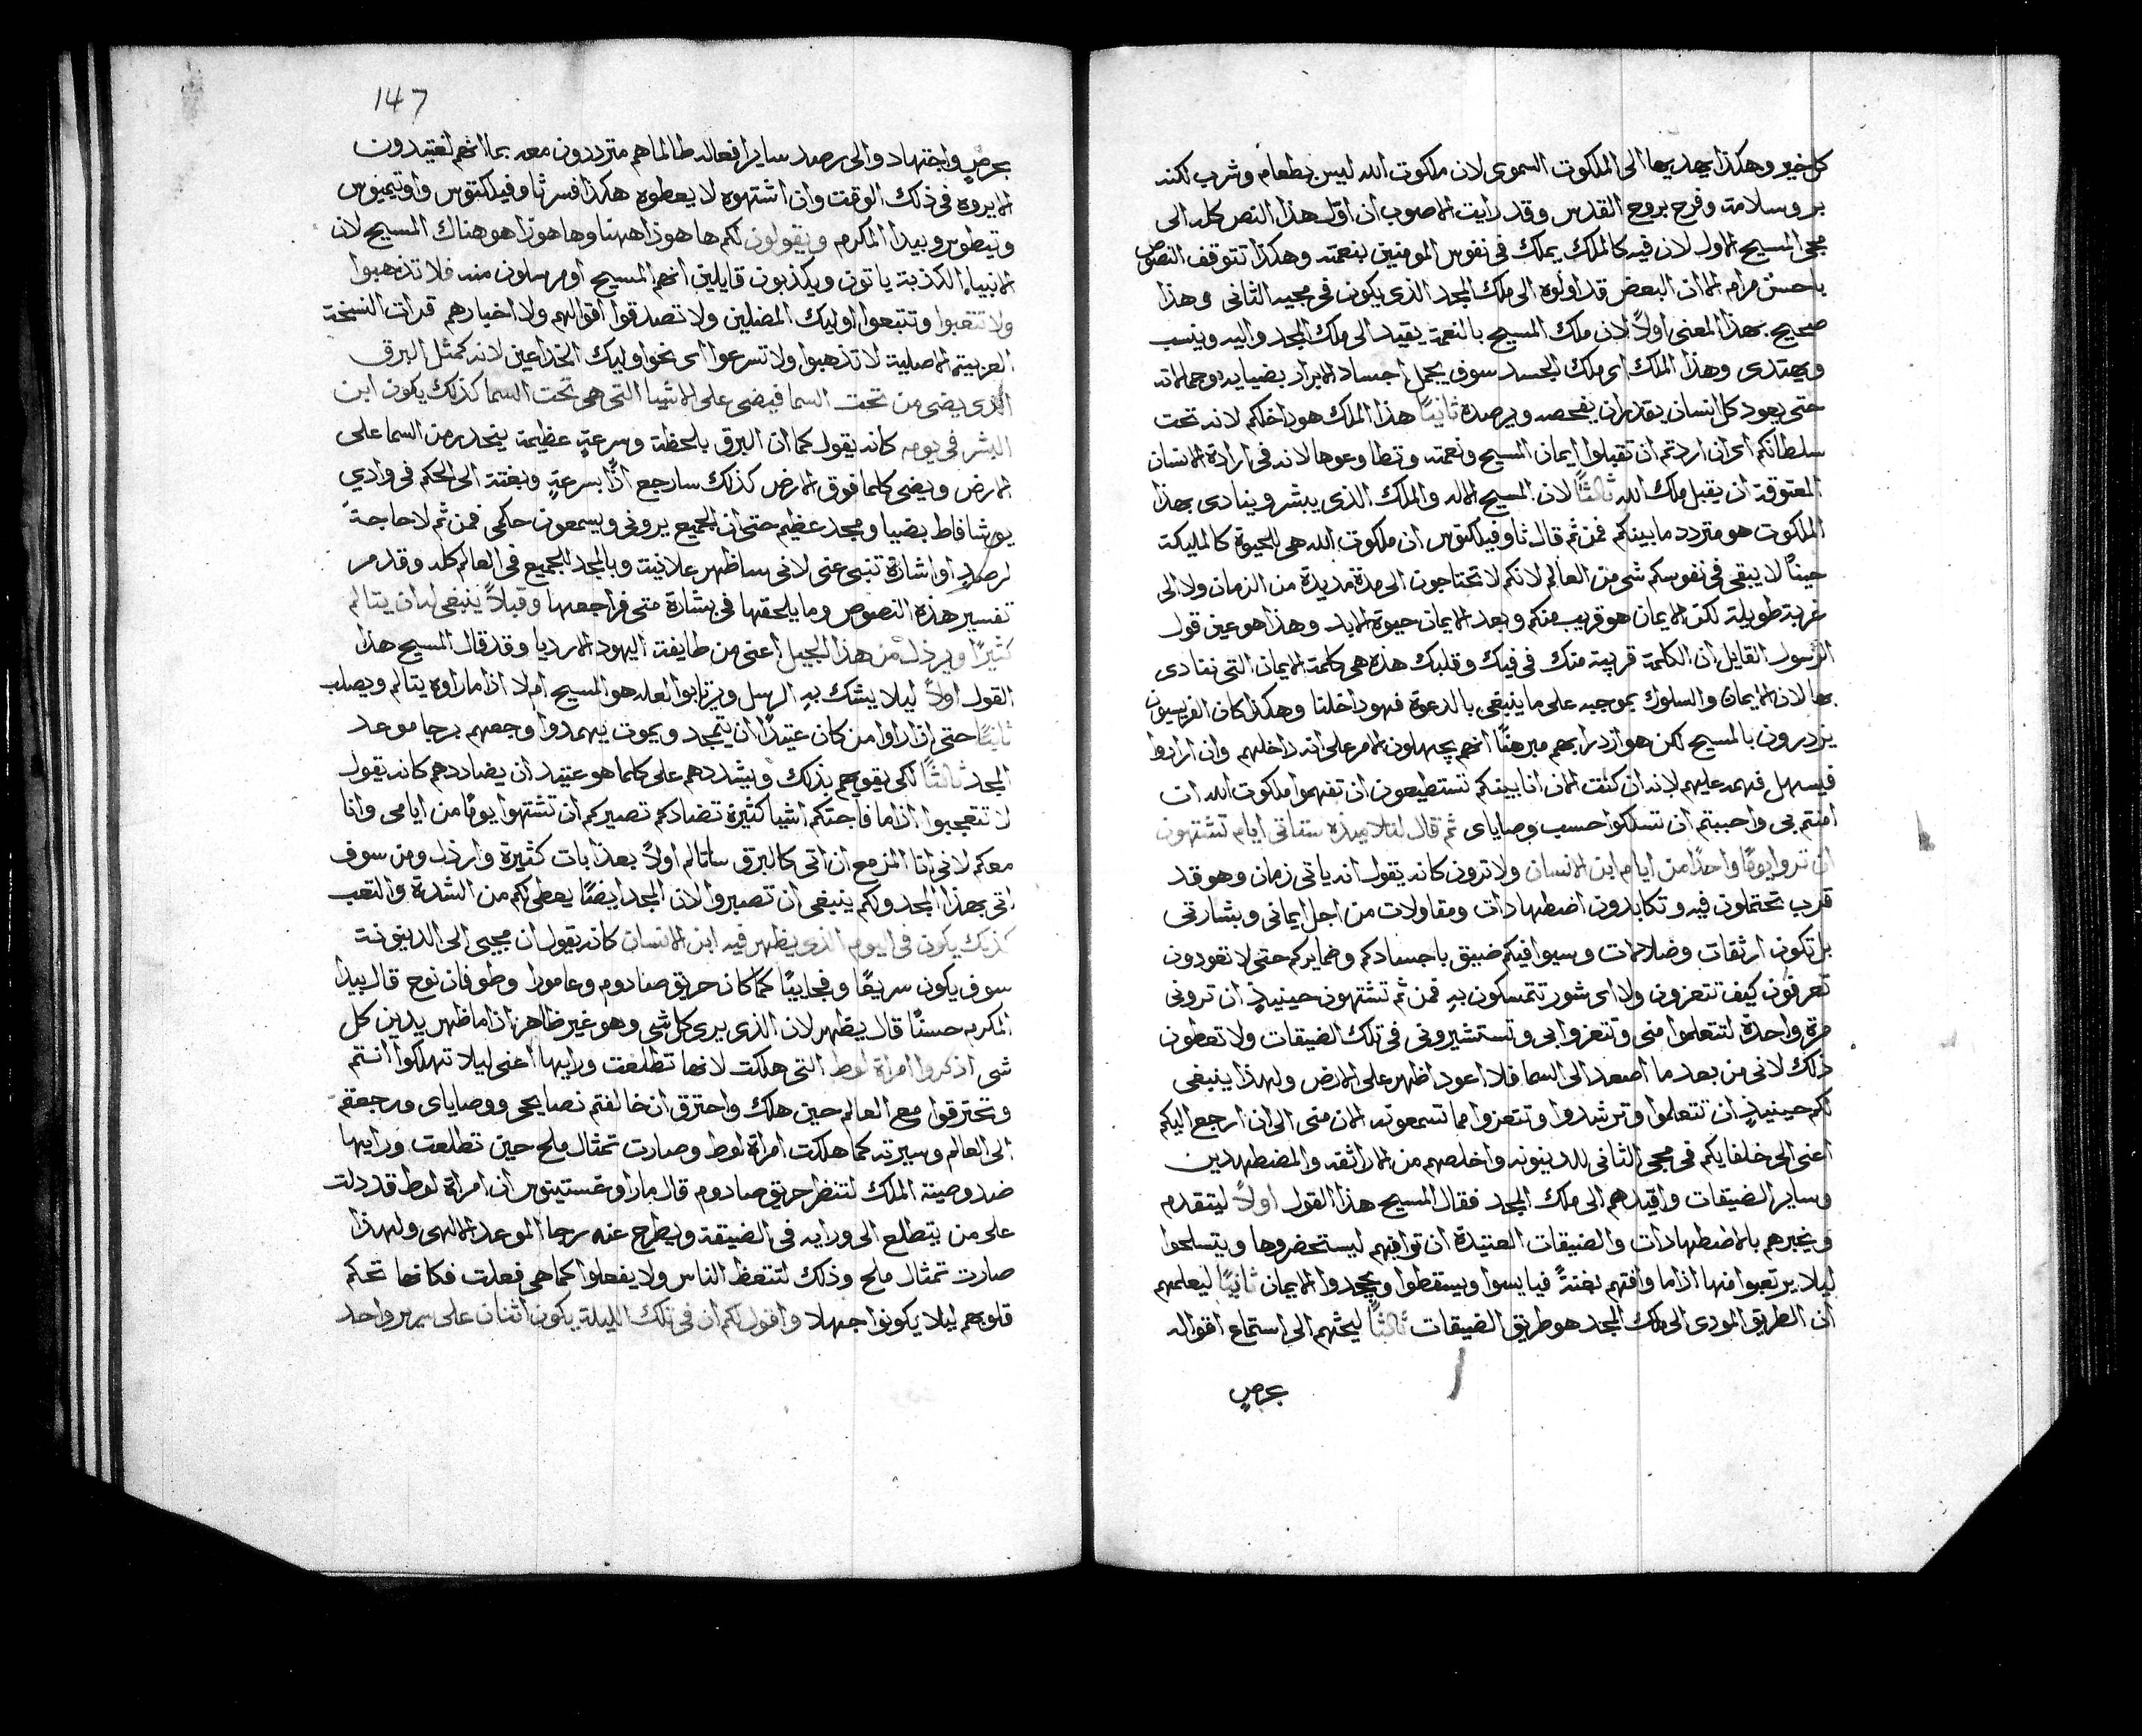 كل خير وهكذا يهديها الى الملكوت السموى لان ملكوت الله ليس بطعام وشرب لكنه
بر وسلامة وفرح بروح القدس وقد رايت الاصوب ان اوّل هذا النص كله الى
مجى المسيح الاول لان فيه كالملك يملك فى نفوس المومنين بنعمته وهكذا تتوقف النصوص
باحسن مرام الا ان البعض قد اولوه الى ملك المجد الذى يكون فى مجيه الثانى وهذا
صحيح بهذا المعنى اولاً لان ملك المسيح بالنعمة يقيد الى ملك المجد واليه وينسب
ويهتدى وهذا الملك اى ملك الجسد سوف يجمل اجساد الابرار بضيايه وجمالاته
حتى يعود كل انسان يقدر ان يفحصه ويرصده ثانيًا هذا الملك هو داخلكم لانه تحت
سلطانكم اى ان اردتم ان تقبلوا ايمان المسيح ونعمته وتطاوعوها لانه فى ارادة الانسان
المعتوقة ان يقبل ملك الله ثالثًا لان المسيح الاله والملك الذى يبشر وينادى بهذا
الملكوت هو متردد ما بينكم فمن ثم قال ثاوفيلكتوس ان ملكوت الله هى الحيوة كالمليكة
حينًا لا يبقى فى نفوسكم شى من العالم لانكم لا تحتاجون الى مدة مديدة من الزمان ولا الى
غربة طويلة لكن الايمان هو قريب منكم وبعد الايمان حيوة الابد وهذا هو عين قول
الرسول القايل ان الكلمة قريبة منك فى فيك وقلبك هذه هى كلمة الايمان التى ننادى
بها لان الايمان والسلوك بموجبه على ما ينبغى بالدعوة فهو داخلنا وهكذا كان الفريسيون
يزدرون بالمسيح لكن هو ازدرا بهم مبرهنًا انهم يجهلون الامر على انه داخلهم وان ارادوا
فيسهل فهمه عليهم لانه ان كنت الان انا بينكم تستطيعون ان تفهموا ملكوت الله ان
امنتم بى واحببتم ان تسلكوا حسب وصاياى ثم قال لتلاميذه ستاتى ايام تشتهون
ان تروا يومًا واحدًا من ايام ابن الانسان ولا ترون كانه يقول انه ياتى زمان وهو قد
قرب تحتملون فيه وتكابدون اضطهادات ومقاولات من اجل ايمانى وبشارتى
بل تكون ارثقات وضلالات وسيوافيكم ضيق باجسادكم وضمايركم حتى لا تعودون
تعرفون كيف تتعزون ولا اى شور تتمسكون بهِ فمن ثم تشتهون حينيذٍ ان ترونى
مرة واحدة لتتعلموا منى وتتعزوا بى وتستشيرونى فى تلك الضيقات ولا تعطون
ذلك لانى من بعد ما اصعد الى السما فلا اعود اظهر على الارض ولهذا ينبغى
لكم حينيذٍ ان تتعلموا وترشدوا وتتعزوا مما تسمعونه الان منى الى ان ارجع اليكم
اعنى الى خلفايكم فى مجى الثانى للدينونه واخلصهم من الاراثقه والمضطهدين
وساير الضيقات واقيدهم الى ملك المجد فقال المسيح هذا القول اولاً ليتقدم
ويخبرهم بالاضطهادات والضيقات العتيدة ان توافيهم ليستحضروها ويتسلحوا
ليلا يرتعبوا منها اذا ما وافتهم بغتةً فيايسوا ويسقطوا ويجحدوا الايمان ثانيًا ليعلمهم
ان الطريق المودى الى ملك المجد هو طريق الضيقات ثالثًا ليحثهم الى استماع اقواله
بحرصٍ
147
بحرصٍ واجتهاد والى رصد ساير افعاله طالما هم مترددون معه بما انهم لعتيدون
الا يروه فى ذلك الوقت وان اشتهوه لا يعطوه هكذا فسر ثاوفيلكتوس واوتيميوس
وتيطوس وبيدا المكرم ويقولون لكم ها هوذا ههنا وها هوذا هو هناك المسيح لان
الانبياء الكذبة ياتون ويكذبون قايلين انهم المسيح او مرسلون منه فلا تذهبوا
ولا تتعبوا وتتبعوا اوليك المضلين ولا تصدقوا اقوالهم ولا اخبارهم قدات النسخة
العربية الاصلية لا تذهبوا ولا تسرعوا اى نحو اوليك الخداعين لانه كمثل البرق
الذى يضى من تحت السما فيضى على الاشيا التى هى تحت السما كذلك يكون ابن
البشر فى يومه كانه يقول كما ان البرق بلحظة وسرعةٍ عظيمة ينحدر من السما على
الارض ويضى كلما فوق الارض كذلك سارجع اذًا بسرعةٍ وبغتة الى الحكم فى وادي
يوشافاط بضيا ومجد عظيم حتى ان الجميع يرونى ويسمعون حكمى فمن ثم لا حاجةً
لرصدٍ او اشارة تنبى عنى لانى ساظهر علانية وبالمجد للجميع فى العالم كله وقد مر
تفسير هذه النصوص وما يلحقها فى بشارة متى فراجعها وقبلاً ينبغى له ان يتالم
كثيرًا ويرذل من هذا الجيل اعنى من طايفة اليهود الارديا وقد قال المسيح هذا
القول اولاً ليلا يشك بهِ الرسل ويرتابوا لعله هو المسيح ام لا اذا ما راوه يتالم ويصلب
ثانيًا حتى اذا راوا من كان عتيدًا ان يتمجد ويموت يهمدوا وجعهم برجا موعد
المجد ثالثًا لكى يقويهم بذلك ويشددهم على كلما هو عتيد ان يضاددهم كانه يقول
لا تتعجبوا اذا ما فاجتكم اشيا كثيرة تضادكم تصيركم ان تشتهوا يومًا من ايامى وانا
معكم لانى انا المزمع ان اتى كالبرق ساتالم اولاً بعذابات كثيرة وارذل ومن سوف
اتى بهذا المجد ولكم ينبغى ان تصبروا لان المجد ايضًا يعطى لكم من الشدة والتعب
كذلك يكون فى اليوم الذى يظهر فيه ابن الانسان كانه يقول ان مجيى الى الدينونة
سوف يكون سريعًا وفجاييًا كما كان حريق صادوم وعامورا وطوفان نوح قال بيدا
المكرم حسنًا قال يظهر لان الذى يرى كل شى وهو غير ظاهر اذا ما ظهر يدين كل
شى اذكروا امراة لوط التى هلكت لانها تطلعت ورايها اعنى ليلا تهلكوا انتم
وتحترقوا مع العالم حين هلك واحترق ان خالفتم نصايحى ووصاياى ورجعتم
الى العالم وسيرته كما هلكت امراة لوط وصارت تمثال ملح حين تطلعت ورايها
ضد وصية الملك لتنظر حريق صادوم قال مار اوغستينوس ان امراة لوط قد دلت
على من يتطلع الى ورايه فى الضيقة ويطرح عنه رجا الموعد الالهى ولهذا
صارت تمثال ملح وذلك لتتعظ الناس ولا يفعلوا كما هى فعلت فكانها تحكم
قلوبهم ليلا يكونوا جهلا واقول لكم ان فى تلك الليلة يكون اثنان على سرير واحد